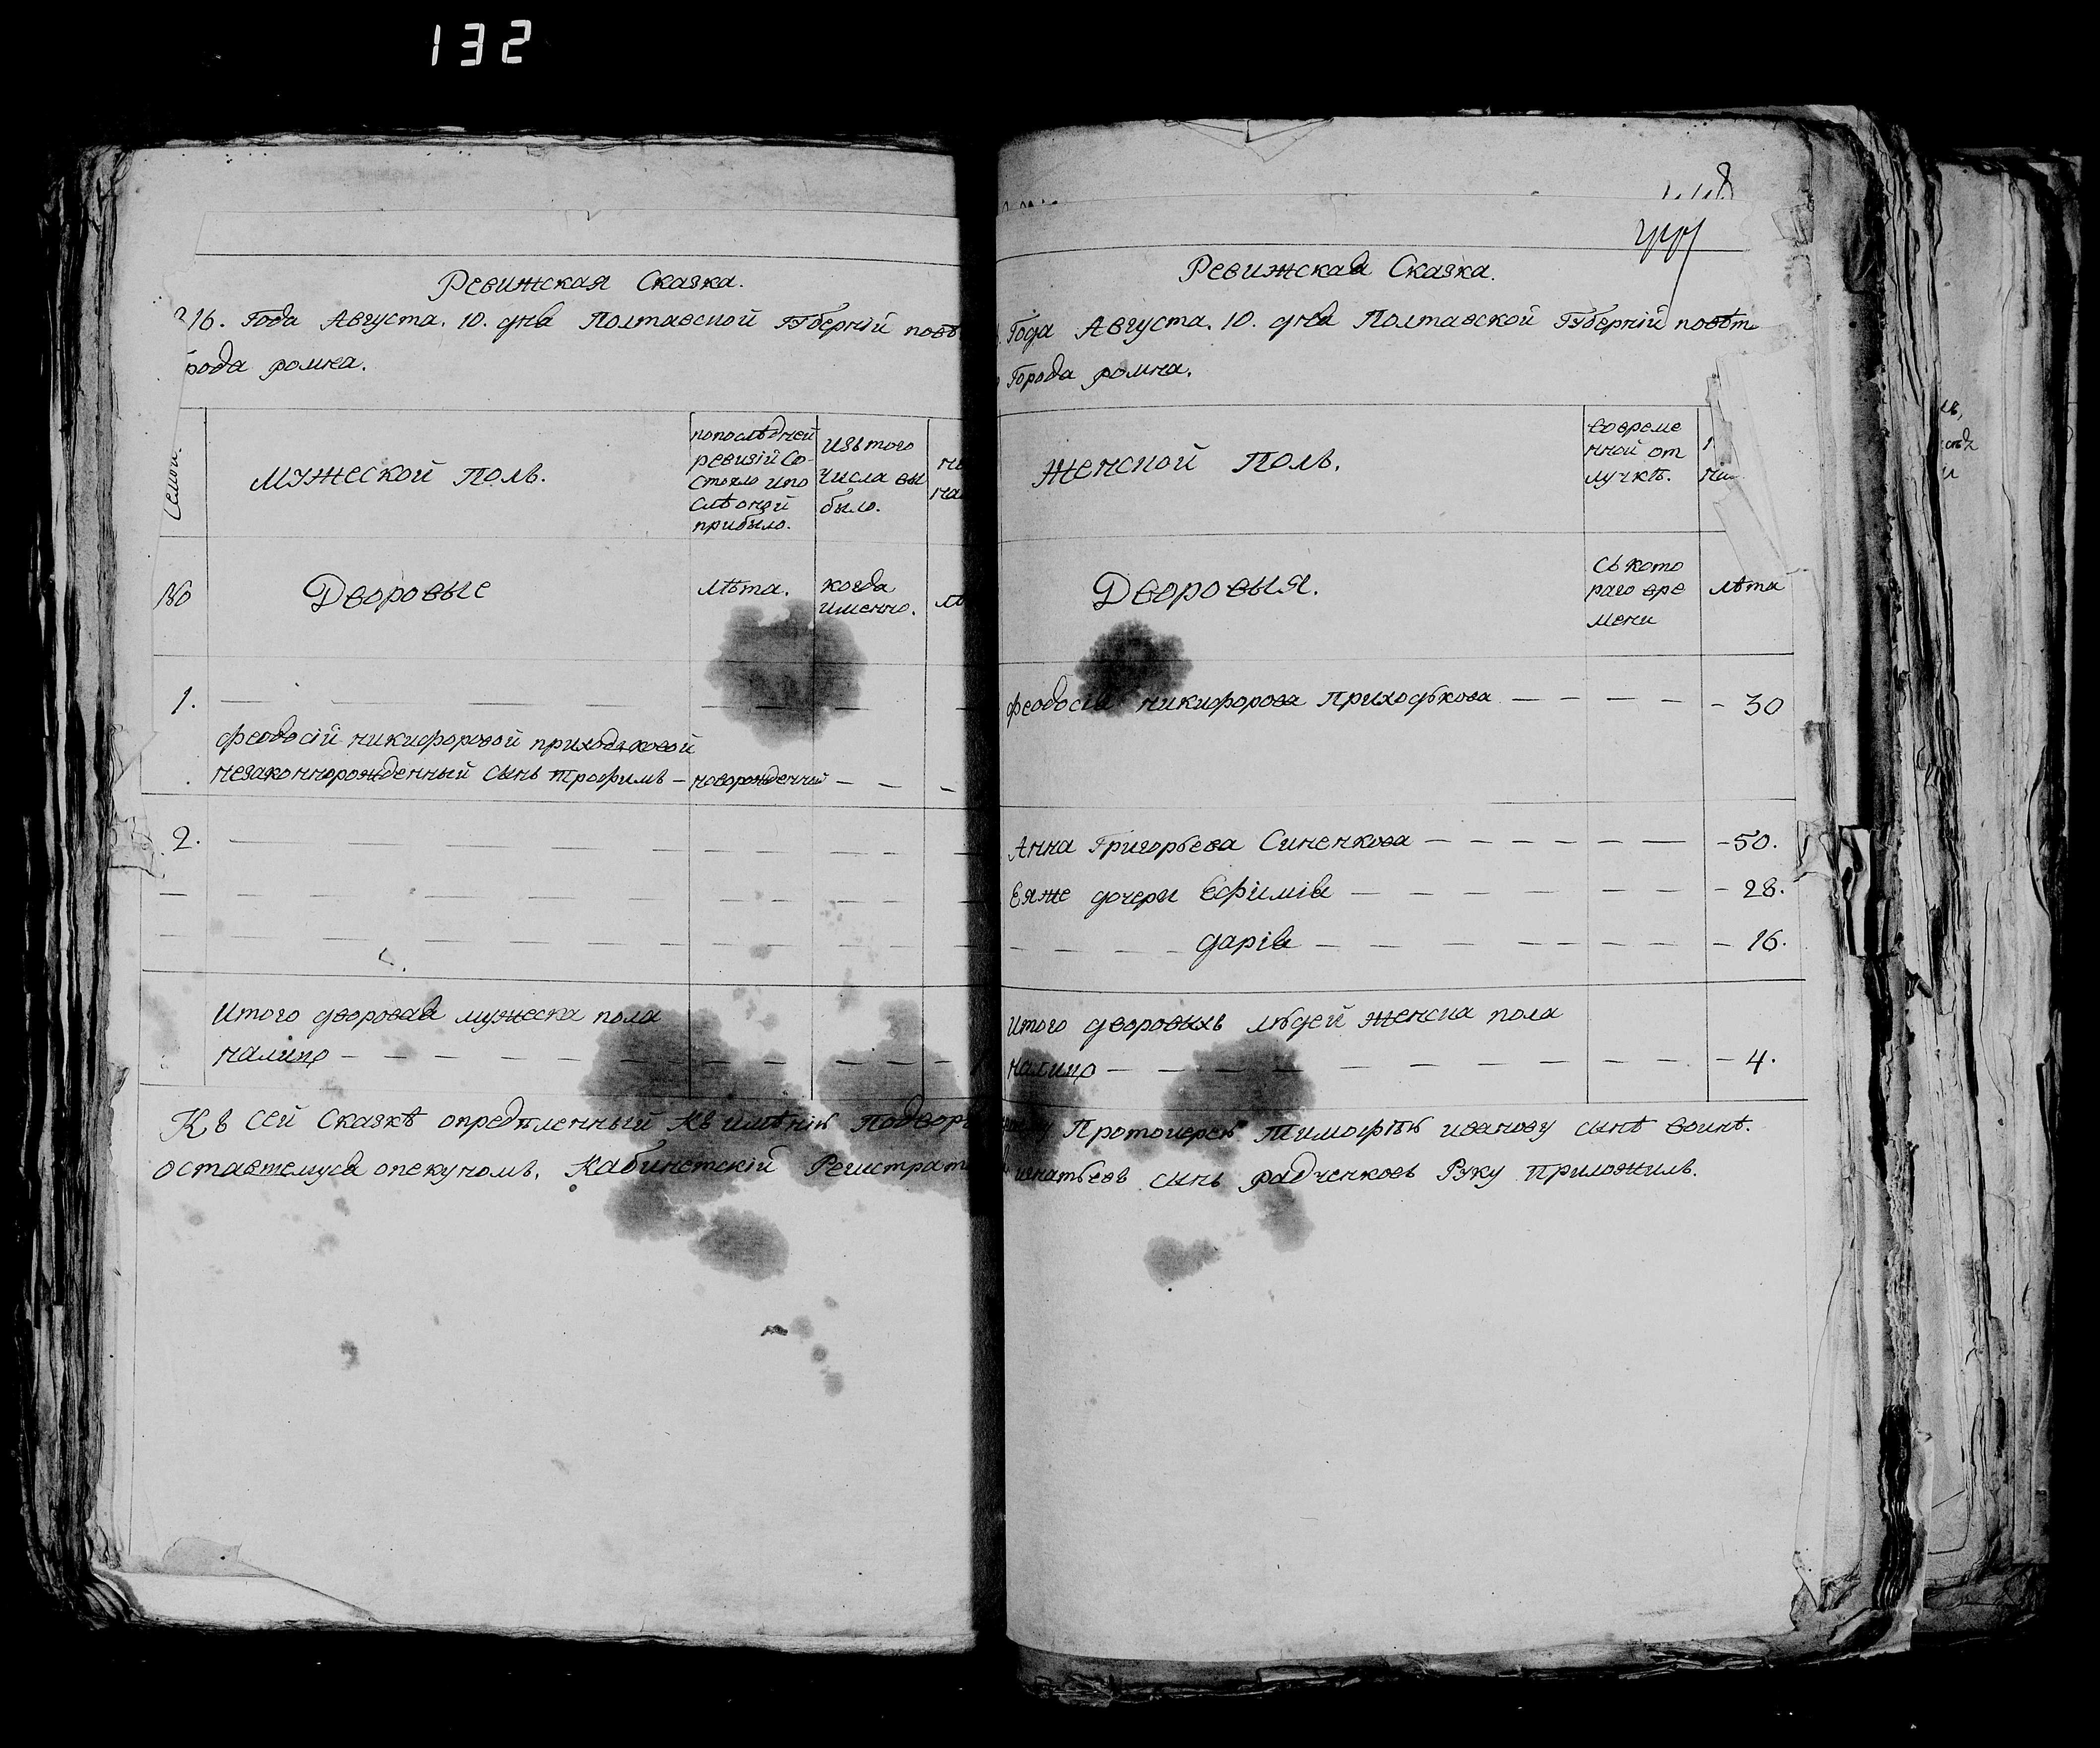 132
Ревижская Сказка.
16. Года Августа. 10. дня Полтавской Губерній повѣ
рода ромна.
Семей.
мужеской поль.
попослѣдней
ревизій Со-
стояло ипо
слѣ оной
прибыло.
Изъ того
числа вы
было.
№
Дворовые
лѣта.
когда
именно.
1.
феодосій никифоровой приходковой
незаконнорожденный сынъ трофимъ – новорожденный
2.
Итого дворовая мужеска пола
налицо
Къ сей Сказкѣ опредѣленный къ имѣнію
оставшемуся опекуномъ. Кабинетскій Регистрат
Ревижская Сказка.
Года Августа. 10. дня Полтавской Губерній повѣт
Города ромна.
Женской Поль.
вовреме
нной от
лучкѣ.
Дворовыя.
съ кото
раго вре
мени
лѣта
феодосія никифорова Приходькова – 30
Анна Григорьева Синенкова – 50.
Еяже дочери Ефимія – 28.
дарія – 16.
Итого дворовыхъ людей женска пола
налицо – 4.
Протоиерею Тимофѣю иванову сынѣ воинѣ.
игнатьевъ сынъ радченковъ Руку приложилъ.